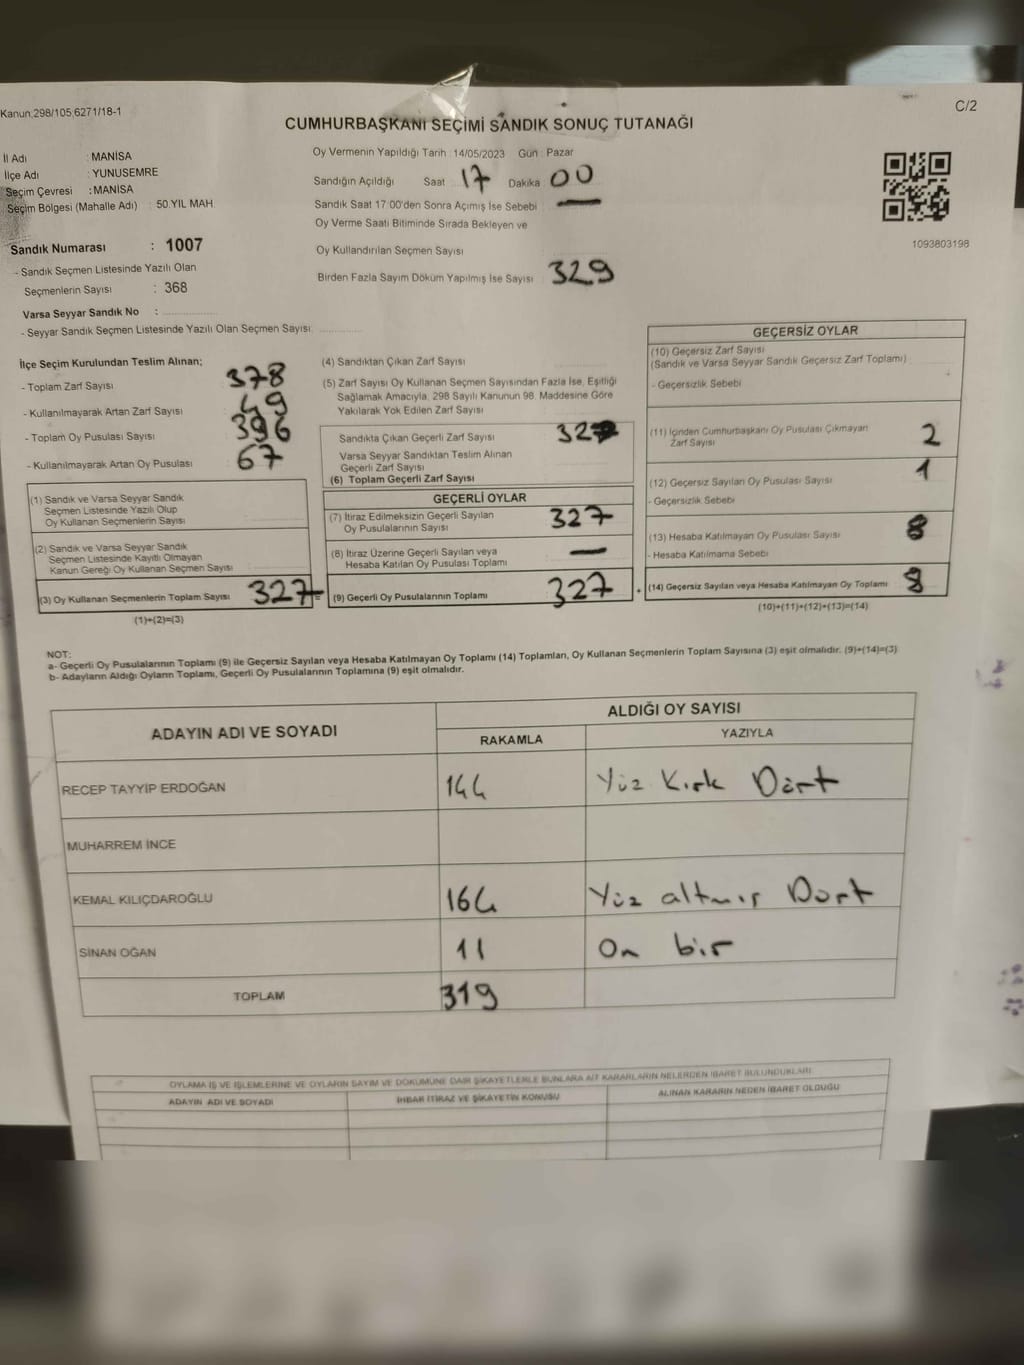 Kanun;298/105,6271/18-1
C/2
CUMHURBAŞKANI SEÇİMİ SANDIK SONUÇ TUTANAĞI
İl Adı : MANİSA
İlçe Adı : YUNUSEMRE
Seçim Çevresi : MANİSA
Seçim Bölgesi (Mahalle Adı) : 50.YIL MAH
Sandık Numarası : 1007
- Sandık Seçmen Listesinde Yazılı Olan
Seçmenlerin Sayısı : 368
Varsa Seyyar Sandık No :
- Seyyar Sandık Seçmen Listesinde Yazılı Olan Seçmen Sayısı:
Oy Vermenin Yapıldığı Tarih : 14/05/2023 Gün : Pazar
Sandığın Açıldığı Saat : 17 Dakika : 00
Sandık Saat 17:00'den Sonra Açımış İse Sebebi : —
Oy Verme Saati Bitiminde Sırada Bekleyen ve
Oy Kullandırılan Seçmen Sayısı
Birden Fazla Sayım Döküm Yapılmış İse Sayısı : 329
1093803198
İlçe Seçim Kurulundan Teslim Alınan;
- Toplam Zarf Sayısı 378
- Kullanılmayarak Artan Zarf Sayısı 49
- Toplam Oy Pusulası Sayısı 396
- Kullanılmayarak Artan Oy Pusulası 67
(1) Sandık ve Varsa Seyyar Sandık
Seçmen Listesinde Yazılı Olup
Oy Kullanan Seçmenlerin Sayısı
(2) Sandık ve Varsa Seyyar Sandık
Seçmen Listesinde Kayıtlı Olmayan
Kanun Gereği Oy Kullanan Seçmen Sayısı
(3) Oy Kullanan Seçmenlerin Toplam Sayısı 327 =
(1)+(2)=(3)
(4) Sandıktan Çıkan Zarf Sayısı
(5) Zarf Sayısı Oy Kullanan Seçmen Sayısından Fazla İse, Eşitliği
Sağlamak Amacıyla, 298 Sayılı Kanunun 98. Maddesine Göre
Yakılarak Yok Edilen Zarf Sayısı
Sandıkta Çıkan Geçerli Zarf Sayısı
Varsa Seyyar Sandıktan Teslim Alınan
Geçerli Zarf Sayısı
(6) Toplam Geçerli Zarf Sayısı
GEÇERLİ OYLAR
(7) İtiraz Edilmeksizin Geçerli Sayılan
Oy Pusulalarının Sayısı 327
(8) İtiraz Üzerine Geçerli Sayılan veya
Hesaba Katılan Oy Pusulası Toplamı —
(9) Geçerli Oy Pusulalarının Toplamı 327 +
GEÇERSİZ OYLAR
(10) Geçersiz Zarf Sayısı
(Sandık ve Varsa Seyyar Sandık Geçersiz Zarf Toplamı)
- Geçersizlik Sebebi
(11) İçinden Cumhurbaşkanı Oy Pusulası Çıkmayan
Zarf Sayısı 2
(12) Geçersiz Sayılan Oy Pusulası Sayısı 1
- Geçersizlik Sebebi
(13) Hesaba Katılmayan Oy Pusulası Sayısı 8
- Hesaba Katılmama Sebebi
(14) Geçersiz Sayılan veya Hesaba Katılmayan Oy Toplamı 8
(10)+(11)+(12)+(13)=(14)
NOT:
a- Geçerli Oy Pusulalarının Toplamı (9) ile Geçersiz Sayılan veya Hesaba Katılmayan Oy Toplamı (14) Toplamları, Oy Kullanan Seçmenlerin Toplam Sayısına (3) eşit olmalıdır. (9)+(14)=(3)
b- Adayların Aldığı Oyların Toplamı, Geçerli Oy Pusulalarının Toplamına (9) eşit olmalıdır.
ADAYIN ADI VE SOYADI
ALDIĞI OY SAYISI
RAKAMLA YAZIYLA
RECEP TAYYİP ERDOĞAN 144 Yüz Kırk Dört
MUHARREM İNCE
KEMAL KILIÇDAROĞLU 164 Yüz altmış Dört
SİNAN OĞAN 11 On bir
TOPLAM 319
OYLAMA İŞ VE İŞLEMLERİNE VE OYLARIN SAYIM VE DÖKÜMÜNE DAİR ŞİKAYETLERLE BUNLARA AİT KARARLARIN NELERDEN İBARET BULUNDUKLARI
ADAYIN ADI VE SOYADI İHBAR İTİRAZ VE ŞİKAYETİN KONUSU ALINAN KARARIN NEDEN İBARET OLDUĞU